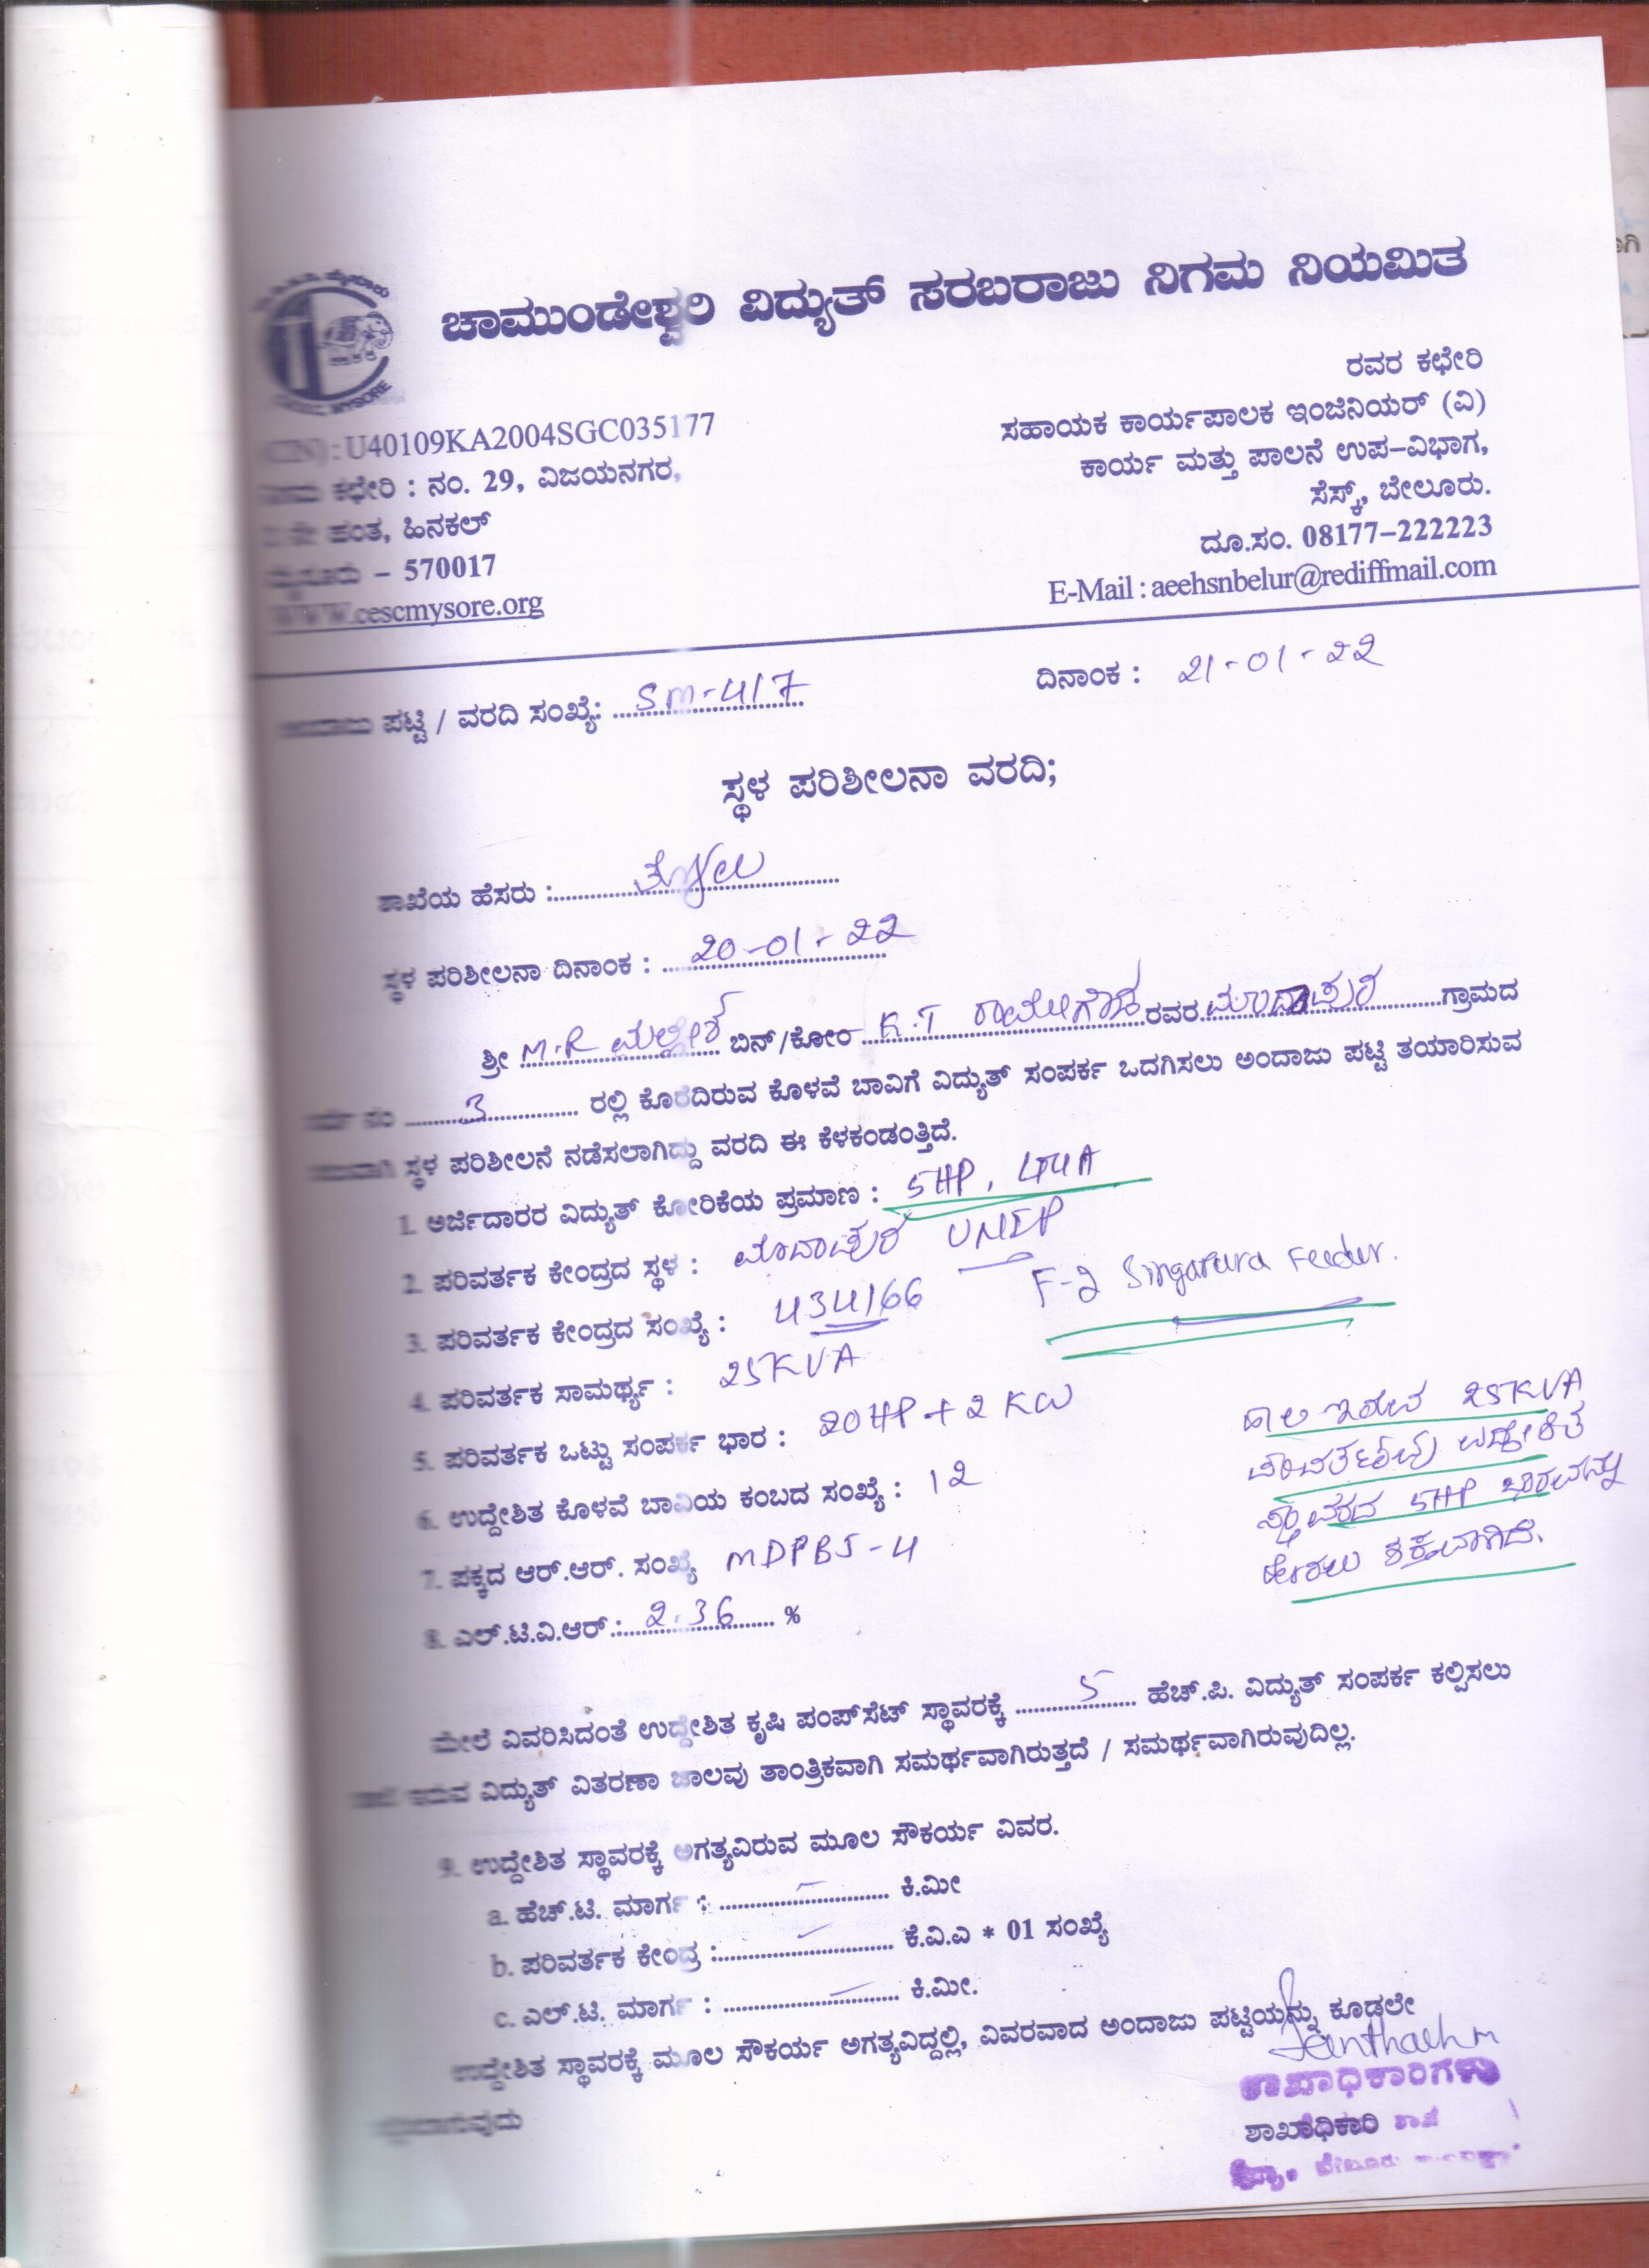 ಚಾಮುಂಡೇಶ್ವರಿ ವಿದ್ಯುತ್ ಸರಬರಾಜು ನಿಗಮ ನಿಯಮಿತ
MYSORE
: U40109KA2004SGC035177
ಕಛೇರಿ : ನಂ. 29, ವಿಜಯನಗರ,
ಹಂತ, ಹಿನಕಲ್
ಮೈಸೂರು – 570017
WWW.cescmysore.org
ರವರ ಕಛೇರಿ
ಸಹಾಯಕ ಕಾರ್ಯಪಾಲಕ ಇಂಜಿನಿಯರ್ (ವಿ)
ಕಾರ್ಯ ಮತ್ತು ಪಾಲನೆ ಉಪ–ವಿಭಾಗ,
ಸೆಸ್ಕ್, ಬೇಲೂರು.
ದೂ.ಸಂ. 08177–222223
E-Mail : aeehsnbelur@rediffmail.com
ಪಟ್ಟಿ / ವರದಿ ಸಂಖ್ಯೆ: SM-417 ದಿನಾಂಕ : 21-01-22
ಸ್ಥಳ ಪರಿಶೀಲನಾ ವರದಿ;
ಶಾಖೆಯ ಹೆಸರು :
ಸ್ಥಳ ಪರಿಶೀಲನಾ ದಿನಾಂಕ : 20-01-22
ಶ್ರೀ M.R ಮಲ್ಲೇಶ್ ಬಿನ್/ಕೋಂ K.T ರಾಮೇಗೌಡ ರವರ ಮಾದಾಪುರ ಗ್ರಾಮದ
ನಂ 3 ರಲ್ಲಿ ಕೊರೆದಿರುವ ಕೊಳವೆ ಬಾವಿಗೆ ವಿದ್ಯುತ್ ಸಂಪರ್ಕ ಒದಗಿಸಲು ಅಂದಾಜು ಪಟ್ಟಿ ತಯಾರಿಸುವ
ಸ್ಥಳ ಪರಿಶೀಲನೆ ನಡೆಸಲಾಗಿದ್ದು ವರದಿ ಈ ಕೆಳಕಂಡಂತ್ತಿದೆ.
1. ಅರ್ಜಿದಾರರ ವಿದ್ಯುತ್ ಕೋರಿಕೆಯ ಪ್ರಮಾಣ : 5HP,
2. ಪರಿವರ್ತಕ ಕೇಂದ್ರದ ಸ್ಥಳ : ಮಾದಾಪುರ UNIP
3. ಪರಿವರ್ತಕ ಕೇಂದ್ರದ ಸಂಖ್ಯೆ : 434166 F-2 Singapura Feeder.
4. ಪರಿವರ್ತಕ ಸಾಮರ್ಥ್ಯ : 25KVA
5. ಪರಿವರ್ತಕ ಒಟ್ಟು ಸಂಪರ್ಕ ಭಾರ : 20HP + 2 KW
6. ಉದ್ದೇಶಿತ ಕೊಳವೆ ಬಾವಿಯ ಕಂಬದ ಸಂಖ್ಯೆ : 12
7. ಪಕ್ಕದ ಆರ್.ಆರ್. ಸಂಖ್ಯೆ MDPBS-4
8. ಎಲ್.ಟಿ.ವಿ.ಆರ್ : 2.36 %
ಹಾಲಿ ಇರುವ 25KVA
ಪರಿವರ್ತಕವು ಉದ್ದೇಶಿತ
ಸ್ಥಾವರದ 5HP ಭಾರವನ್ನು
ಹೇರಲು ಶಕ್ತವಾಗಿದೆ.
ಮೇಲೆ ವಿವರಿಸಿದಂತೆ ಉದ್ದೇಶಿತ ಕೃಷಿ ಪಂಪ್‌ಸೆಟ್ ಸ್ಥಾವರಕ್ಕೆ 5 ಹೆಚ್.ಪಿ. ವಿದ್ಯುತ್ ಸಂಪರ್ಕ ಕಲ್ಪಿಸಲು
ಇರುವ ವಿದ್ಯುತ್ ವಿತರಣಾ ಜಾಲವು ತಾಂತ್ರಿಕವಾಗಿ ಸಮರ್ಥವಾಗಿರುತ್ತದೆ / ಸಮರ್ಥವಾಗಿರುವುದಿಲ್ಲ.
9. ಉದ್ದೇಶಿತ ಸ್ಥಾವರಕ್ಕೆ ಅಗತ್ಯವಿರುವ ಮೂಲ ಸೌಕರ್ಯ ವಿವರ.
a. ಹೆಚ್.ಟಿ. ಮಾರ್ಗ : – ಕಿ.ಮೀ
b. ಪರಿವರ್ತಕ ಕೇಂದ್ರ : – ಕೆ.ವಿ.ಎ * 01 ಸಂಖ್ಯೆ
c. ಎಲ್.ಟಿ. ಮಾರ್ಗ : – ಕಿ.ಮೀ.
ಉದ್ದೇಶಿತ ಸ್ಥಾವರಕ್ಕೆ ಮೂಲ ಸೌಕರ್ಯ ಅಗತ್ಯವಿದ್ದಲ್ಲಿ, ವಿವರವಾದ ಅಂದಾಜು ಪಟ್ಟಿಯನ್ನು ಕೂಡಲೇ
ಶಾಖಾಧಿಕಾರಿಗಳು
ಶಾಖಾಧಿಕಾರಿ ಶಾಖೆ